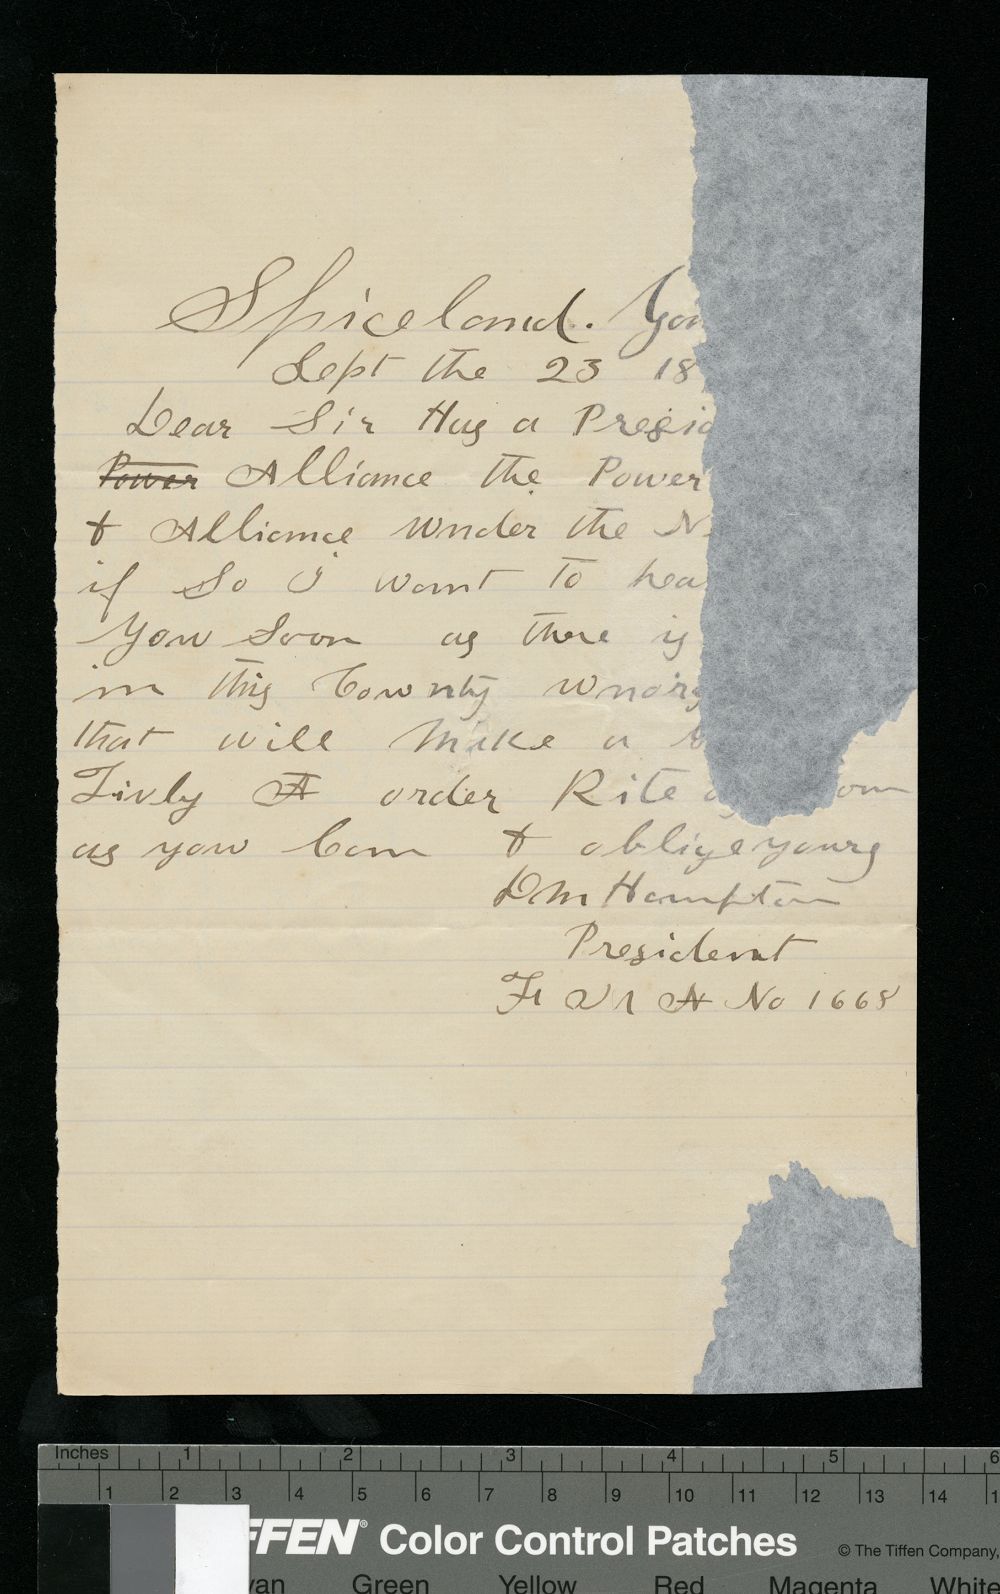 Spiceland. You
Sept the 23 18
Dear Sir Has a Presid
Power Alliance the Power
& Alliance under the N
if So I want to hea
You Soon as there is
in this County
that will Make a
Livly A order Rite
as you Can & oblige yours
D M Hampton
President
F & A No 1668
Inches 1 2 3 4 5 6
1 2 3 4 5 6 7 8 9 10 11 12 13 14
FFEN® Color Control Patches © The Tiffen Company,
yan Green Yellow Red Magenta White